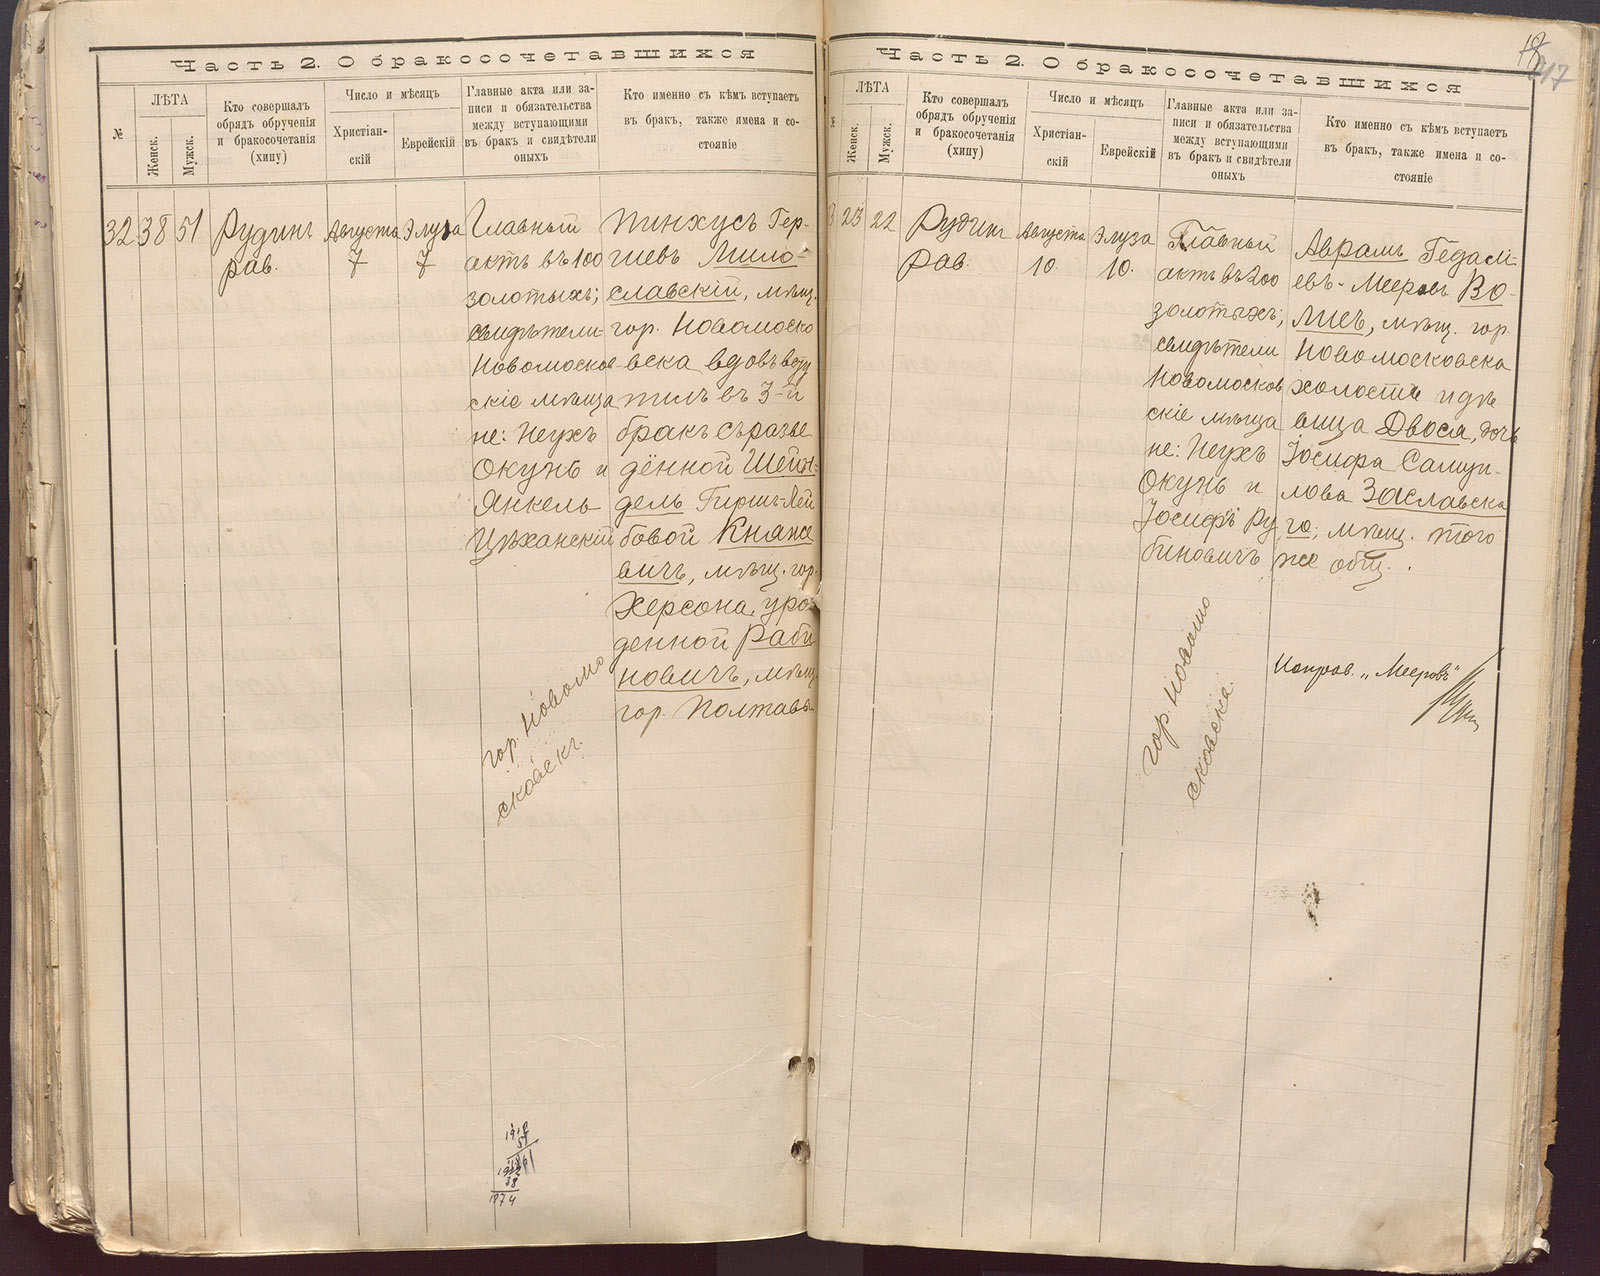 Часть 2. О бракосочетавшихся
№
ЛѢТА
Женск.
Мужск.
Кто совершалъ
обрядъ обрученія
и бракосочетанія
(хипу)
Число и мѣсяцъ
Христіан-
скій
Еврейскій
Главные акта или за-
писи и обязательства
между вступающими
въ бракъ и свидѣтели
оныхъ
Кто именно съ кѣмъ вступаетъ
въ бракъ, также имена и со-
стояніе
32
38
51
Рудинъ
рав.
Августа
7
Элула
7
Главный
актъ въ 100
золотыхъ;
свидѣтели
Новомосков-
скіе мѣща
не: Пеухъ
Окунь и
Янкель
Цѣханскій
гор. Новомо
сковскъ.
Пинхусъ Гер-
шевъ Мило-
славскій, мѣщ.
гор. Новомоско
вска вдовъ всту
пилъ въ 3-й
бракъ съ разве
дённой Шейн-
дель Гиршъ-Лей
бовой Княже
вичъ, мѣщ. гор.
Херсона, уро
денной Раби
новичъ, мѣщ
гор. Полтавы
1912
51
1861
1912
38
1874
Часть 2. О бракосочетавшихся
18
17
№
ЛѢТА
Женск.
Мужск.
Кто совершалъ
обрядъ обрученія
и бракосочетанія
(хипу)
Число и мѣсяцъ
Христіан-
скій
Еврейскій
Главные акта или за-
писи и обязательства
между вступающими
въ бракъ и свидѣтели
оныхъ
Кто именно съ кѣмъ вступаетъ
въ бракъ, также имена и со-
стояніе
3
23
22
Рудинъ
Рав.
Августа
10.
Элуза
10.
Главный
актъ въ 200
золотыхъ;
свидѣтели
Новомосков
скіе мѣща
не: Пеухъ
Окунь и
Іосифъ Ру
биновичъ
гор. Новомо
сковска.
Аврамъ Гедалі-
евъ-Мееровъ Во-
лисъ, мѣщ. гор.
Новомосковска
холостъ и дѣ
вица Двося, дочь
Іосифа Самуи-
лова Заславска
го, мѣщ. того
же общ.
Исправ. „Мееровъ"